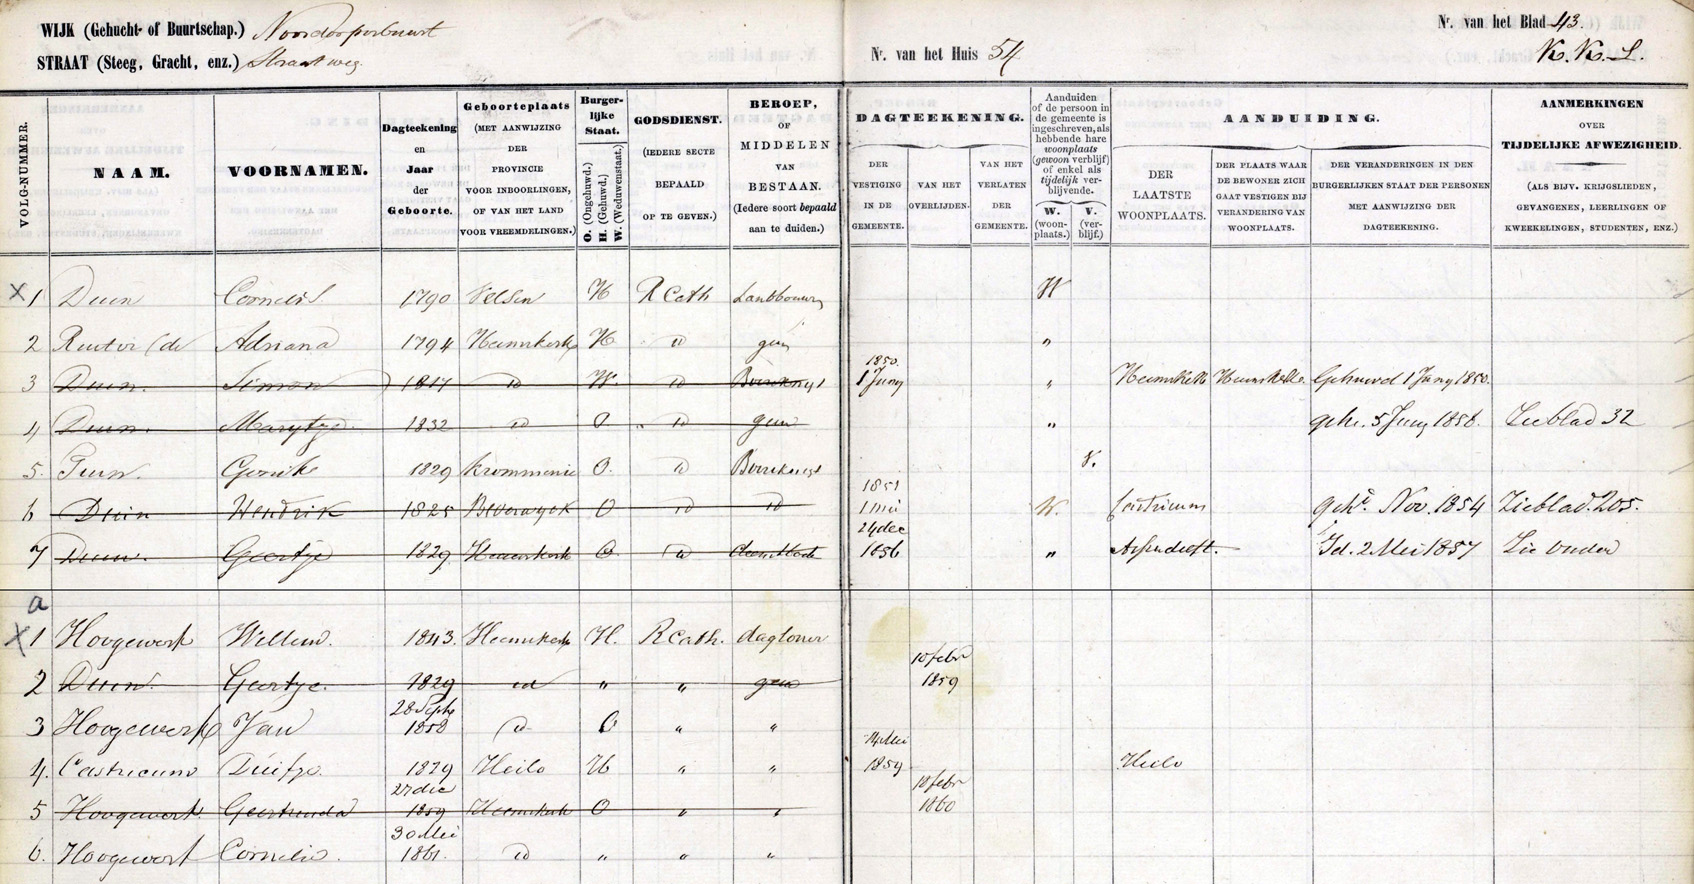 WIJK (Gehucht- of Buurtschap.) Noorddorperbuurt
Nr. van het Blad 43.
STRAAT (Steeg, Gracht, enz.) Straatweg.
Nr. van het Huis 54
K.K.L.
VOLG-NUMMER.
NAAM.
VOORNAMEN.
Dagteekening en Jaar der Geboorte.
Geboorteplaats (MET AANWIJZING DER PROVINCIE VOOR INBOORLINGEN, OF VAN HET LAND VOOR VREEMDELINGEN.)
Burger-lijke Staat.
O. (Ongehuwd.)
H. (Gehuwd.)
W. (Weduwenstaat.)
GODSDIENST. (IEDERE SECTE BEPAALD OP TE GEVEN.)
BEROEP, OF MIDDELEN VAN BESTAAN. (Iedere soort bepaald aan te duiden.)
DAGTEEKENING.
DER VESTIGING IN DE GEMEENTE.
VAN HET OVERLIJDEN.
VAN HET VERLATEN DER GEMEENTE.
Aanduiden of de persoon in de gemeente is ingeschreven, als hebbende hare woonplaats (gewoon verblijf) of enkel als tijdelijk verblijvende.
W. (woon-plaats.)
V. (ver-blijf.)
AANDUIDING.
DER LAATSTE WOONPLAATS.
DER PLAATS WAAR DE BEWONER ZICH GAAT VESTIGEN BIJ VERANDERING VAN WOONPLAATS.
DER VERANDERINGEN IN DEN BURGERLIJKEN STAAT DER PERSONEN MET AANWIJZING DER DAGTEEKENING.
AANMERKINGEN OVER TIJDELIJKE AFWEZIGHEID. (ALS BIJV. KRIJGSLIEDEN, GEVANGENEN, LEERLINGEN OF KWEEKELINGEN, STUDENTEN, ENZ.)
X 1 Duin Cornelis 1790 Velsen H R Cath Landbouwer W
2 Ruiter (de Adriana 1794 Heemskerk H id geen "
3 Duin. Simon 1817 id W. id Boereknegt 1850. 1 Juny " Gehuwd 1 Juny 1850.
4 Duin. Marytje 1832 id O " id geen " geh. 5 Juny 1858. Zie blad 32
5. 1829 Krommenie O. id Boereknegt V.
6 Duin Hendrik 1825 Beverwyck O id id 1851 1 mei W. Castricum geh.d Nov. 1854 Zie blad. 205.
7 Duin. Geertje 1829 Heemskerk O id dienstbode 24 dec 1856 " Assendelft. Gd. 2 Mei 1857 Zie onder
a
X 1 Hoogewerf Willem. 1843. Heemskerk H. R Cath. dagloner
2 Duin. Geertje. 1829 id " " geen 10 febr 1859
3 Hoogewerf Jan 28 Septr 1858 id O " "
4. Castricum Duifje. 1829 Heilo H " " 14 Mei 1859 Heilo
5 Hoogewerf. Geertruida 27 dec 1859 Heemskerk O " " 18 febr 1860
6. Hoogewerf Cornelis. 30 Mei 1861. id " " "